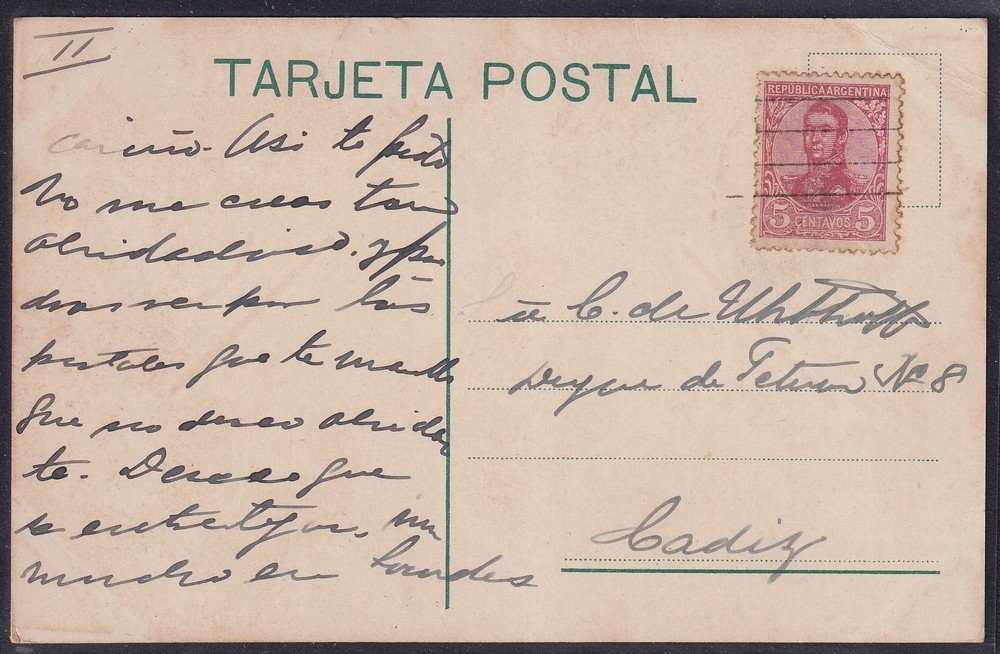 II
TARJETA POSTAL
REPUBLICA ARGENTINA
5 CENTAVOS 5
cariño. Asi te pido
No me creas tan
olvidadiso. y po
dras ver por las
postales que te mando
que no deseo olvidar
te. Deseo que
se entretejan, mu
mucho en Lourdes
C. de Uhthoff
Duque de Tetuan Nº 8
Cadiz